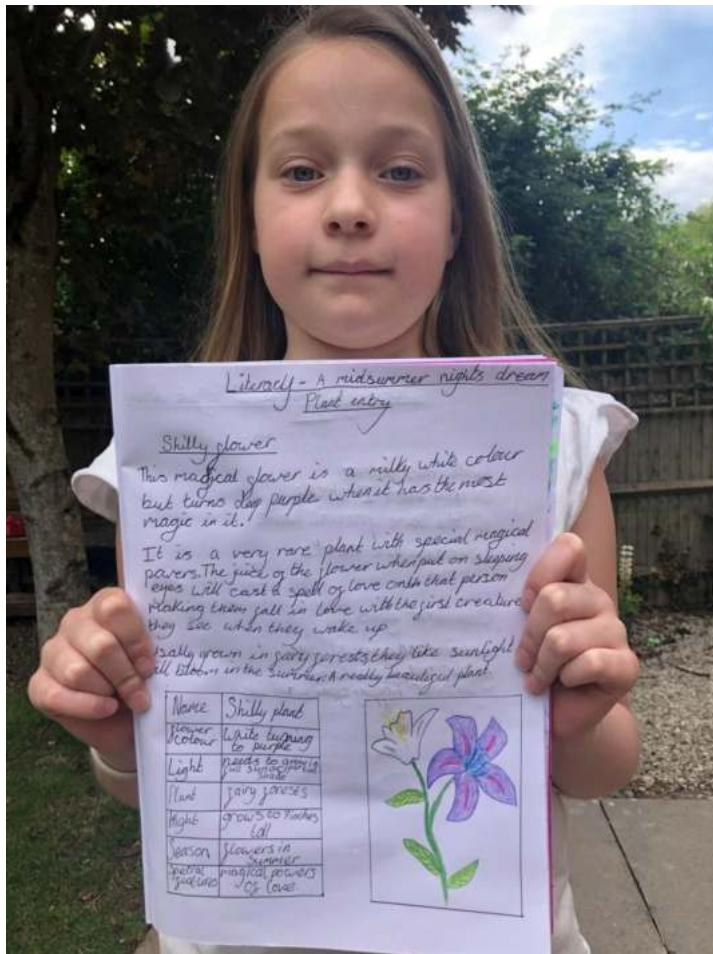 Literacy - A midsummer nights dream
Plant entry
Shilly flower
This magical flower is a milky white colour
but turns deep purple when it has the most
magic in it.
It is a very rare plant with special magical
powers. The juice of the flower when put on sleeping
eyes will cast a spell of love onto that person
making them fall in love with the first creature
they see when they wake up.
grown in fairy forests they like sunlight
bloom in the summer. A really beautiful plant.
Name Shilly plant
Flower colour white turning
to purple
Light needs to grow in
full sun or partial
shade
Plant fairy forests
Hight grows to 7 inches
tall
Season flowers in
summer
Special features magical powers
of love